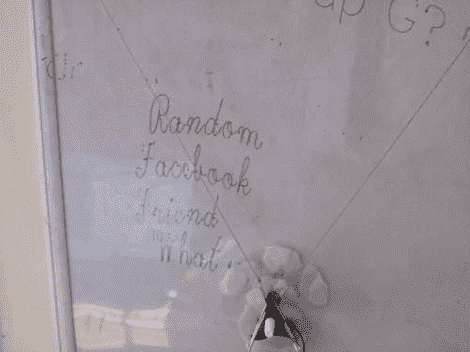 up G?
Random
Facebook
Friend
What..